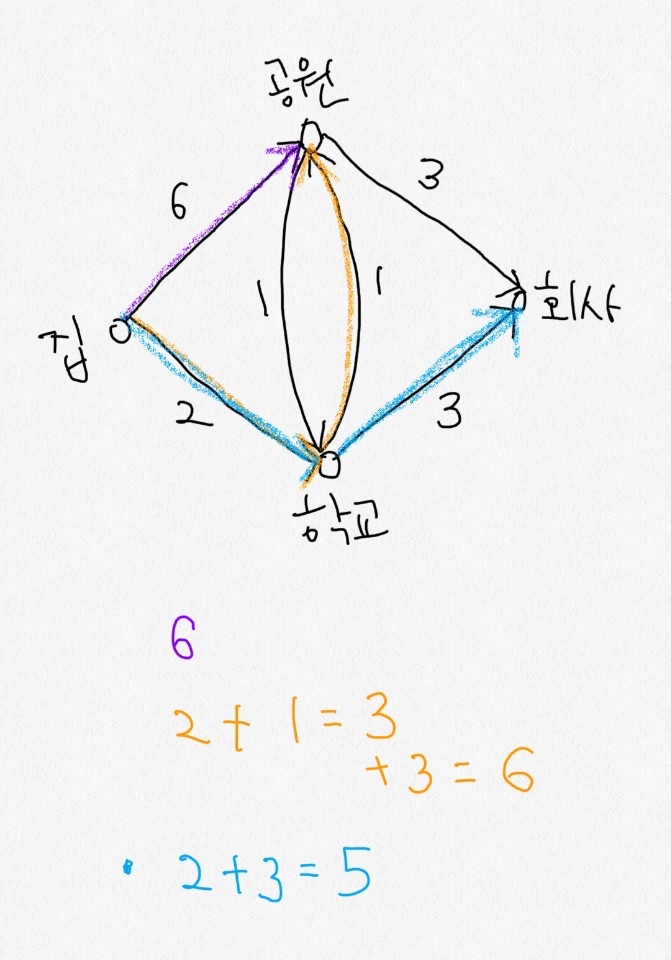 공원
6
3
1
1
집
회사
2
3
학교
6
2 + 1 = 3
+ 3 = 6
• 2 + 3 = 5